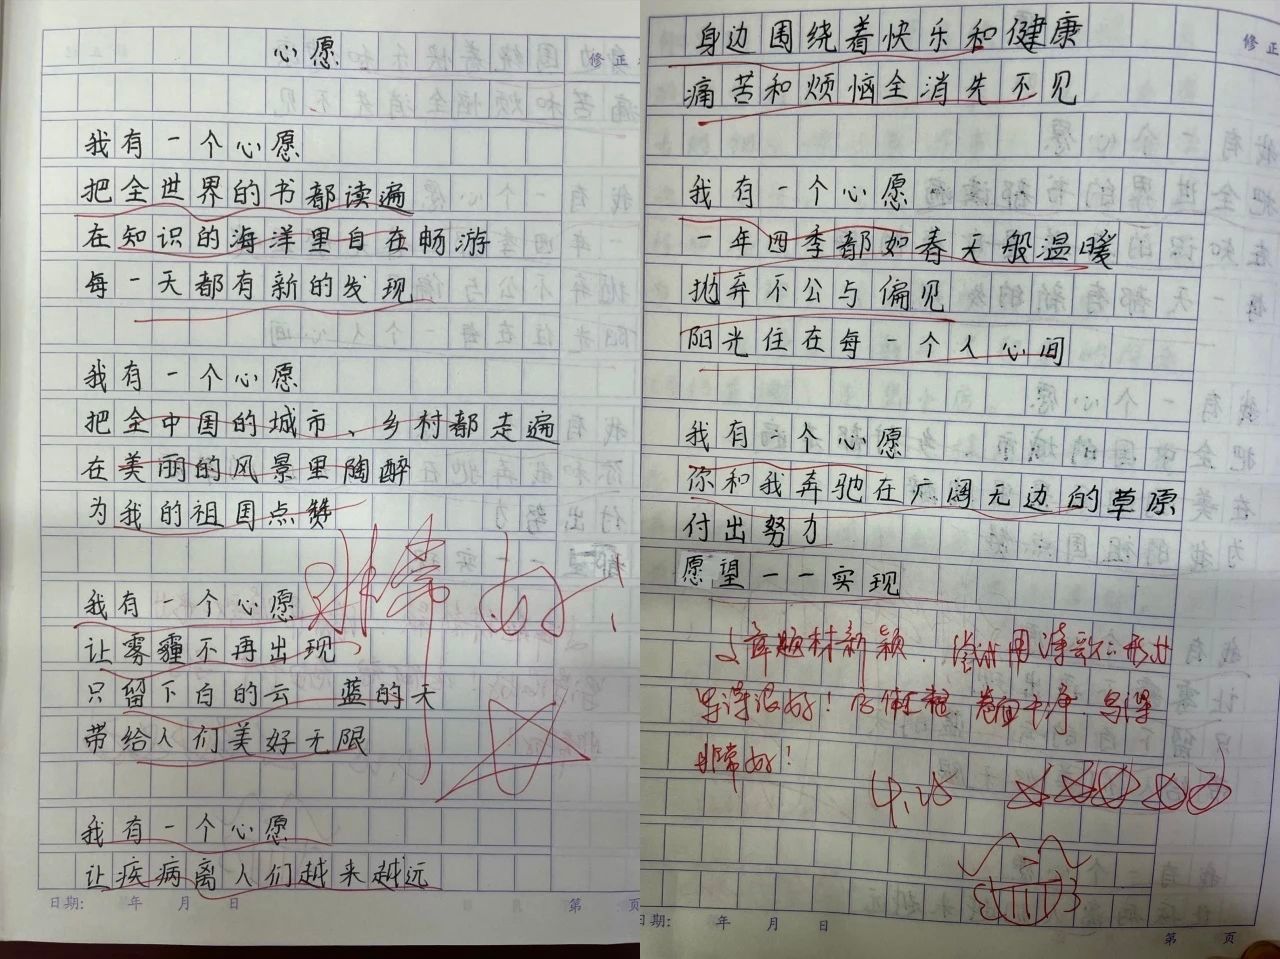 心愿
修正
我有一个心愿
把全世界的书都读遍
在知识的海洋里自在畅游
每一天都有新的发现
我有一个心愿
把全中国的城市、乡村都走遍
在美丽的风景里陶醉
为我的祖国点赞
我有一个心愿
让雾霾不再出现
只留下白的云 蓝的天
带给人们美好无限
我有一个心愿
让疾病离人们越来越远
非常好!
日期: 年 月 日 第 页
身边围绕着快乐和健康
修正
痛苦和烦恼全消失不见
我有一个心愿
一年四季都如春天般温暖
抛弃不公与偏见
阳光住在每一个人心间
我有一个心愿
你和我奔驰在广阔无边的草原
付出努力
愿望一一实现
文章题材新颖,尝试用诗歌的形式
写得很好!字体工整,卷面干净,写得
非常好!
4.18
日期: 年 月 日
第 页